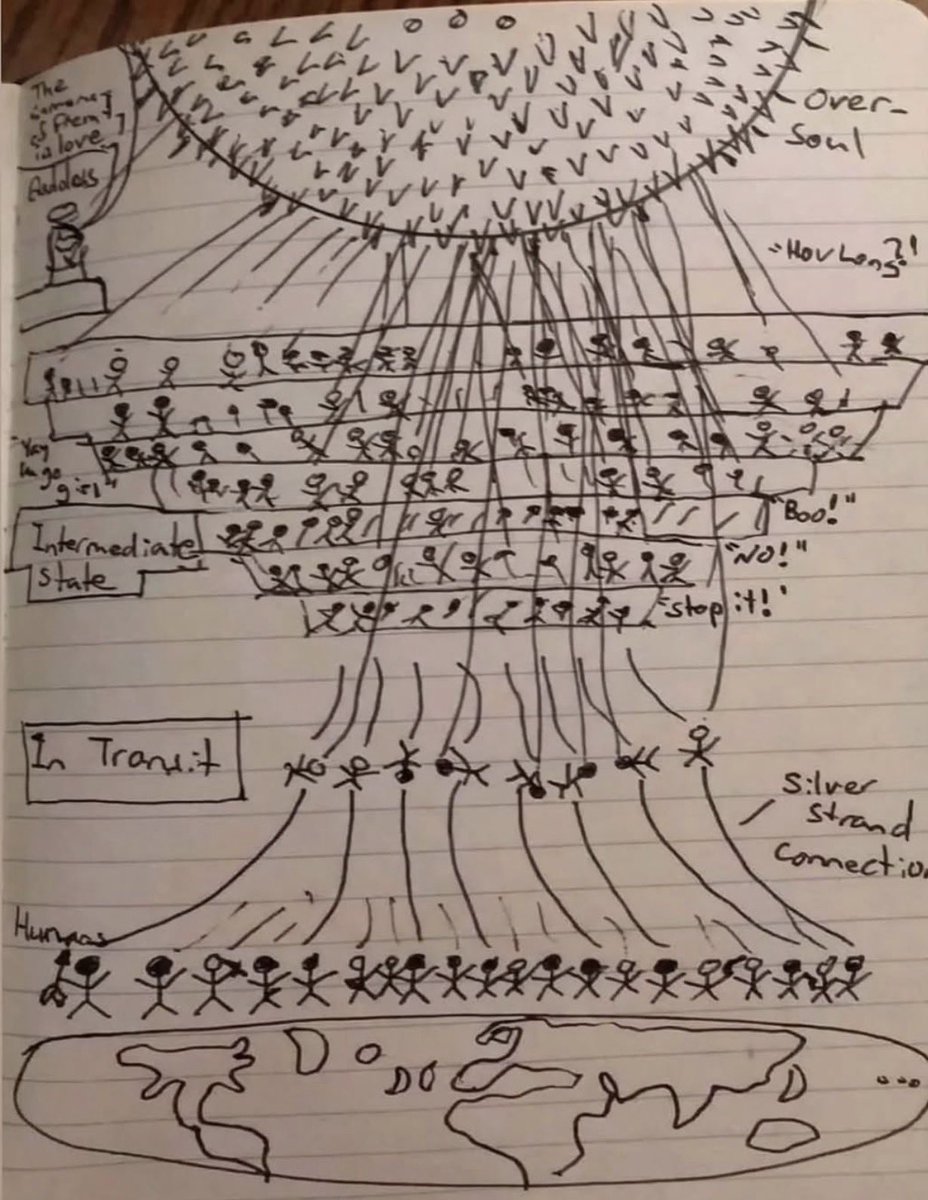 The
of them
in love
Goddess
Over-
Soul
"How Long?!"
"Yay
girl"
Intermediate
State
"Boo!"
"NO!"
"Stop it!"
In Transit
Silver
Strand
Connection
Humans